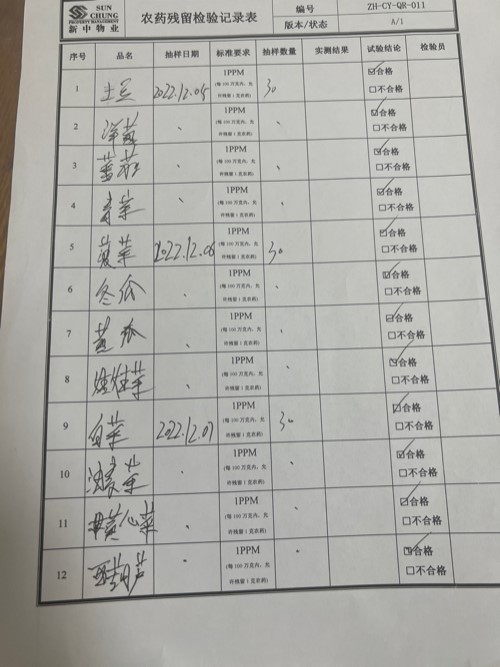 SUN CHUNG
PROPERTY MANAGEMENT
新中物业
农药残留检验记录表
编号 ZH-CY-QR-011
版本/状态 A/1
序号 品名 抽样日期 标准要求 抽样数量 实测结果 试验结论 检验员
1 土豆 2022.12.05 1PPM (每100万克内，允许残留1克农药) 30 ☑合格 □不合格
2 1PPM (每100万克内，允许残留1克农药) ☑合格 □不合格
3 1PPM (每100万克内，允许残留1克农药) ☑合格 □不合格
4 青菜 1PPM (每100万克内，允许残留1克农药) ☑合格 □不合格
5 菠菜 2022.12.06 1PPM (每100万克内，允许残留1克农药) 30 ☑合格 □不合格
6 冬瓜 1PPM (每100万克内，允许残留1克农药) ☑合格 □不合格
7 黄瓜 1PPM (每100万克内，允许残留1克农药) ☑合格 □不合格
8 娃娃菜 1PPM (每100万克内，允许残留1克农药) ☑合格 □不合格
9 白菜 2022.12.07 1PPM (每100万克内，允许残留1克农药) 30 ☑合格 □不合格
10 油麦菜 1PPM (每100万克内，允许残留1克农药) ☑合格 □不合格
11 黄心菜 1PPM (每100万克内，允许残留1克农药) ☑合格 □不合格
12 西葫芦 1PPM (每100万克内，允许残留1克农药) ☑合格 □不合格